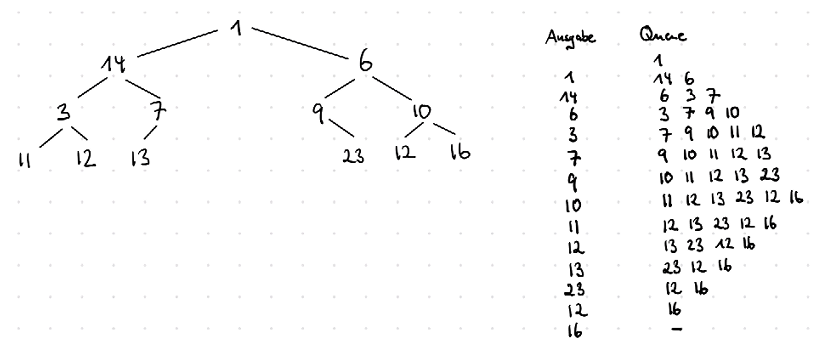 1
14 6
3 7 9 10
11 12 13 23 12 16
Ausgabe Queue
1
1 14 6
14 6 3 7
6 3 7 9 10
3 7 9 10 11 12
7 9 10 11 12 13
9 10 11 12 13 23
10 11 12 13 23 12 16
11 12 13 23 12 16
12 13 23 12 16
13 23 12 16
23 12 16
12 16
16 –